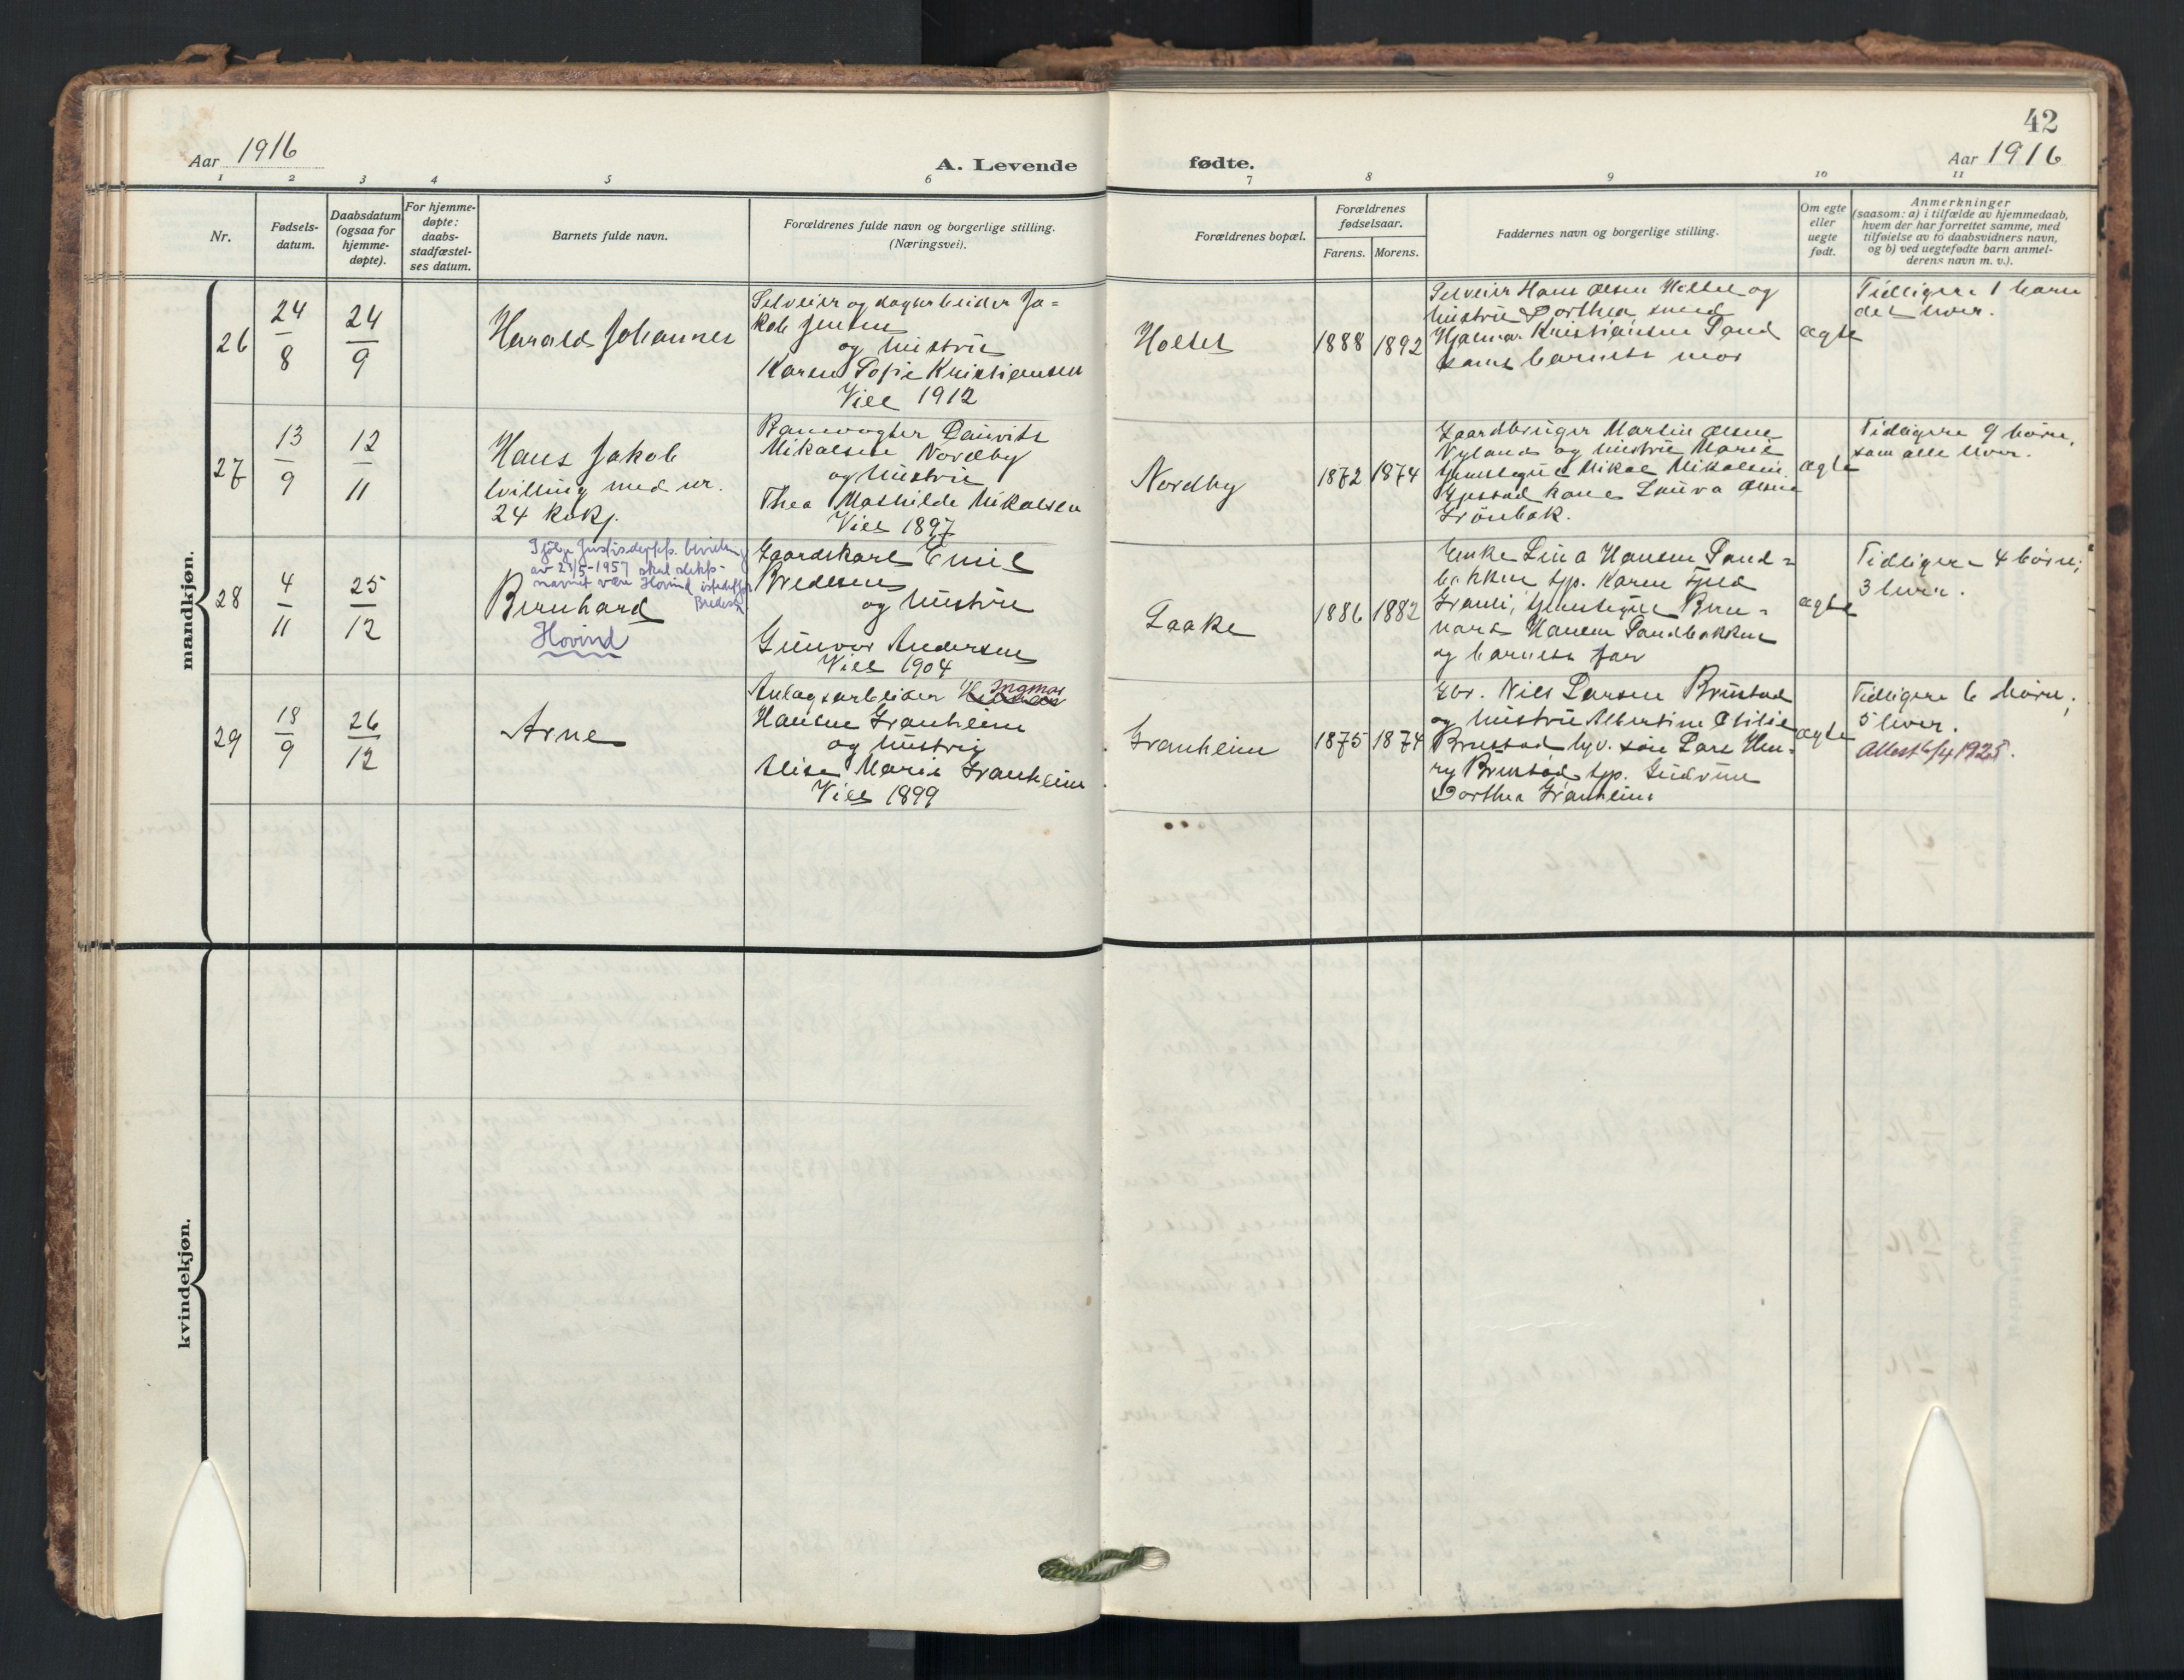 Aar 1916
A. Levende
1 2 3 4 5 6
Nr.
Fødsels-
datum.
Daabsdatum
(ogsaa for
hjemme-
døpte).
For hjemme-
døpte:
daabs-
stadfæstel-
ses datum.
Barnets fulde navn.
Forældrenes fulde navn og borgerlige stilling.
(Næringsvei).
mandkjøn.
26
24
8
24
9
Harald Johannes
Selveier og dagarbeider Ja=
kob Jensen
og hustru
Karen Sofie Kristiansen
Viet 1912
27
13
9
12
11
Hans Jakob
tvilling med nr.
24 kvkj.
Banevogter Lauritz
Mikalsen Nordby
og hustru
Thea Mathilde Mikalsen
Viet 1897
28
4
11
25
12
Ifølge Justisdeptts. bevilling
av 23/5-1957 skal slekts-
navnet være Hovind istedetfor
Bredesen
Bernhard
Hovind
Gaardskarl Emil
Bredesen
og hustru
Gunvor Andersen
Viet 1904
29
18
9
26
12
Arne
Anlagsarbeider Ingmar
Hansen Granheim
og hustru
Alise Marie Granheim
Viet 1899
kvindekjøn.
42
fødte.
Aar 1916
7 8 9 10 11
Forældrenes bopæl.
Forældrenes
fødselsaar.
Farens. Morens.
Faddernes navn og borgerlige stilling.
Om egte
eller
uegte
født.
Anmerkninger
(saasom: a) i tilfælde av hjemmedaab,
hvem der har forrettet samme, med
tilføielse av to daabsvidners navn,
og b) ved uegtefødte barn anmel-
derens navn m. v.).
Holtet
1888 1892
Selveier Hans Olsen Holtet og
hustru Dorthea, smed
Hjalmar Kristiansen Sand
samt barnets mor
ægte
Tidligere 1 barn
det lever.
Nordby
1872 1874
Gaardbruger Martin Olsen
Nyland og hustru Marie
Ungkarl Mikal Mikalsen
kone Laura Olsen
Grønbak.
ægte
Tidligere 9 børn,
som alle lever.
Laake
1886 1882
Enke Lina Hansen Sand=
bakken tjp. Karen Fjeld
Grauli, Ungkarl
Hansen Sandbakken
og barnets far
ægte
Tidligere 4 børn;
3 lever.
Granheim
1875 1874
Gbr. Nils Larsen Brustad
og hustru Albertine Otilie
Brustad hjv. søn Lars Hen=
ry Brustad tjp. Gudrun
Dorthea Granheim
ægte
Tidligere 6 børn;
5 lever.
Attest 6/4 1925.